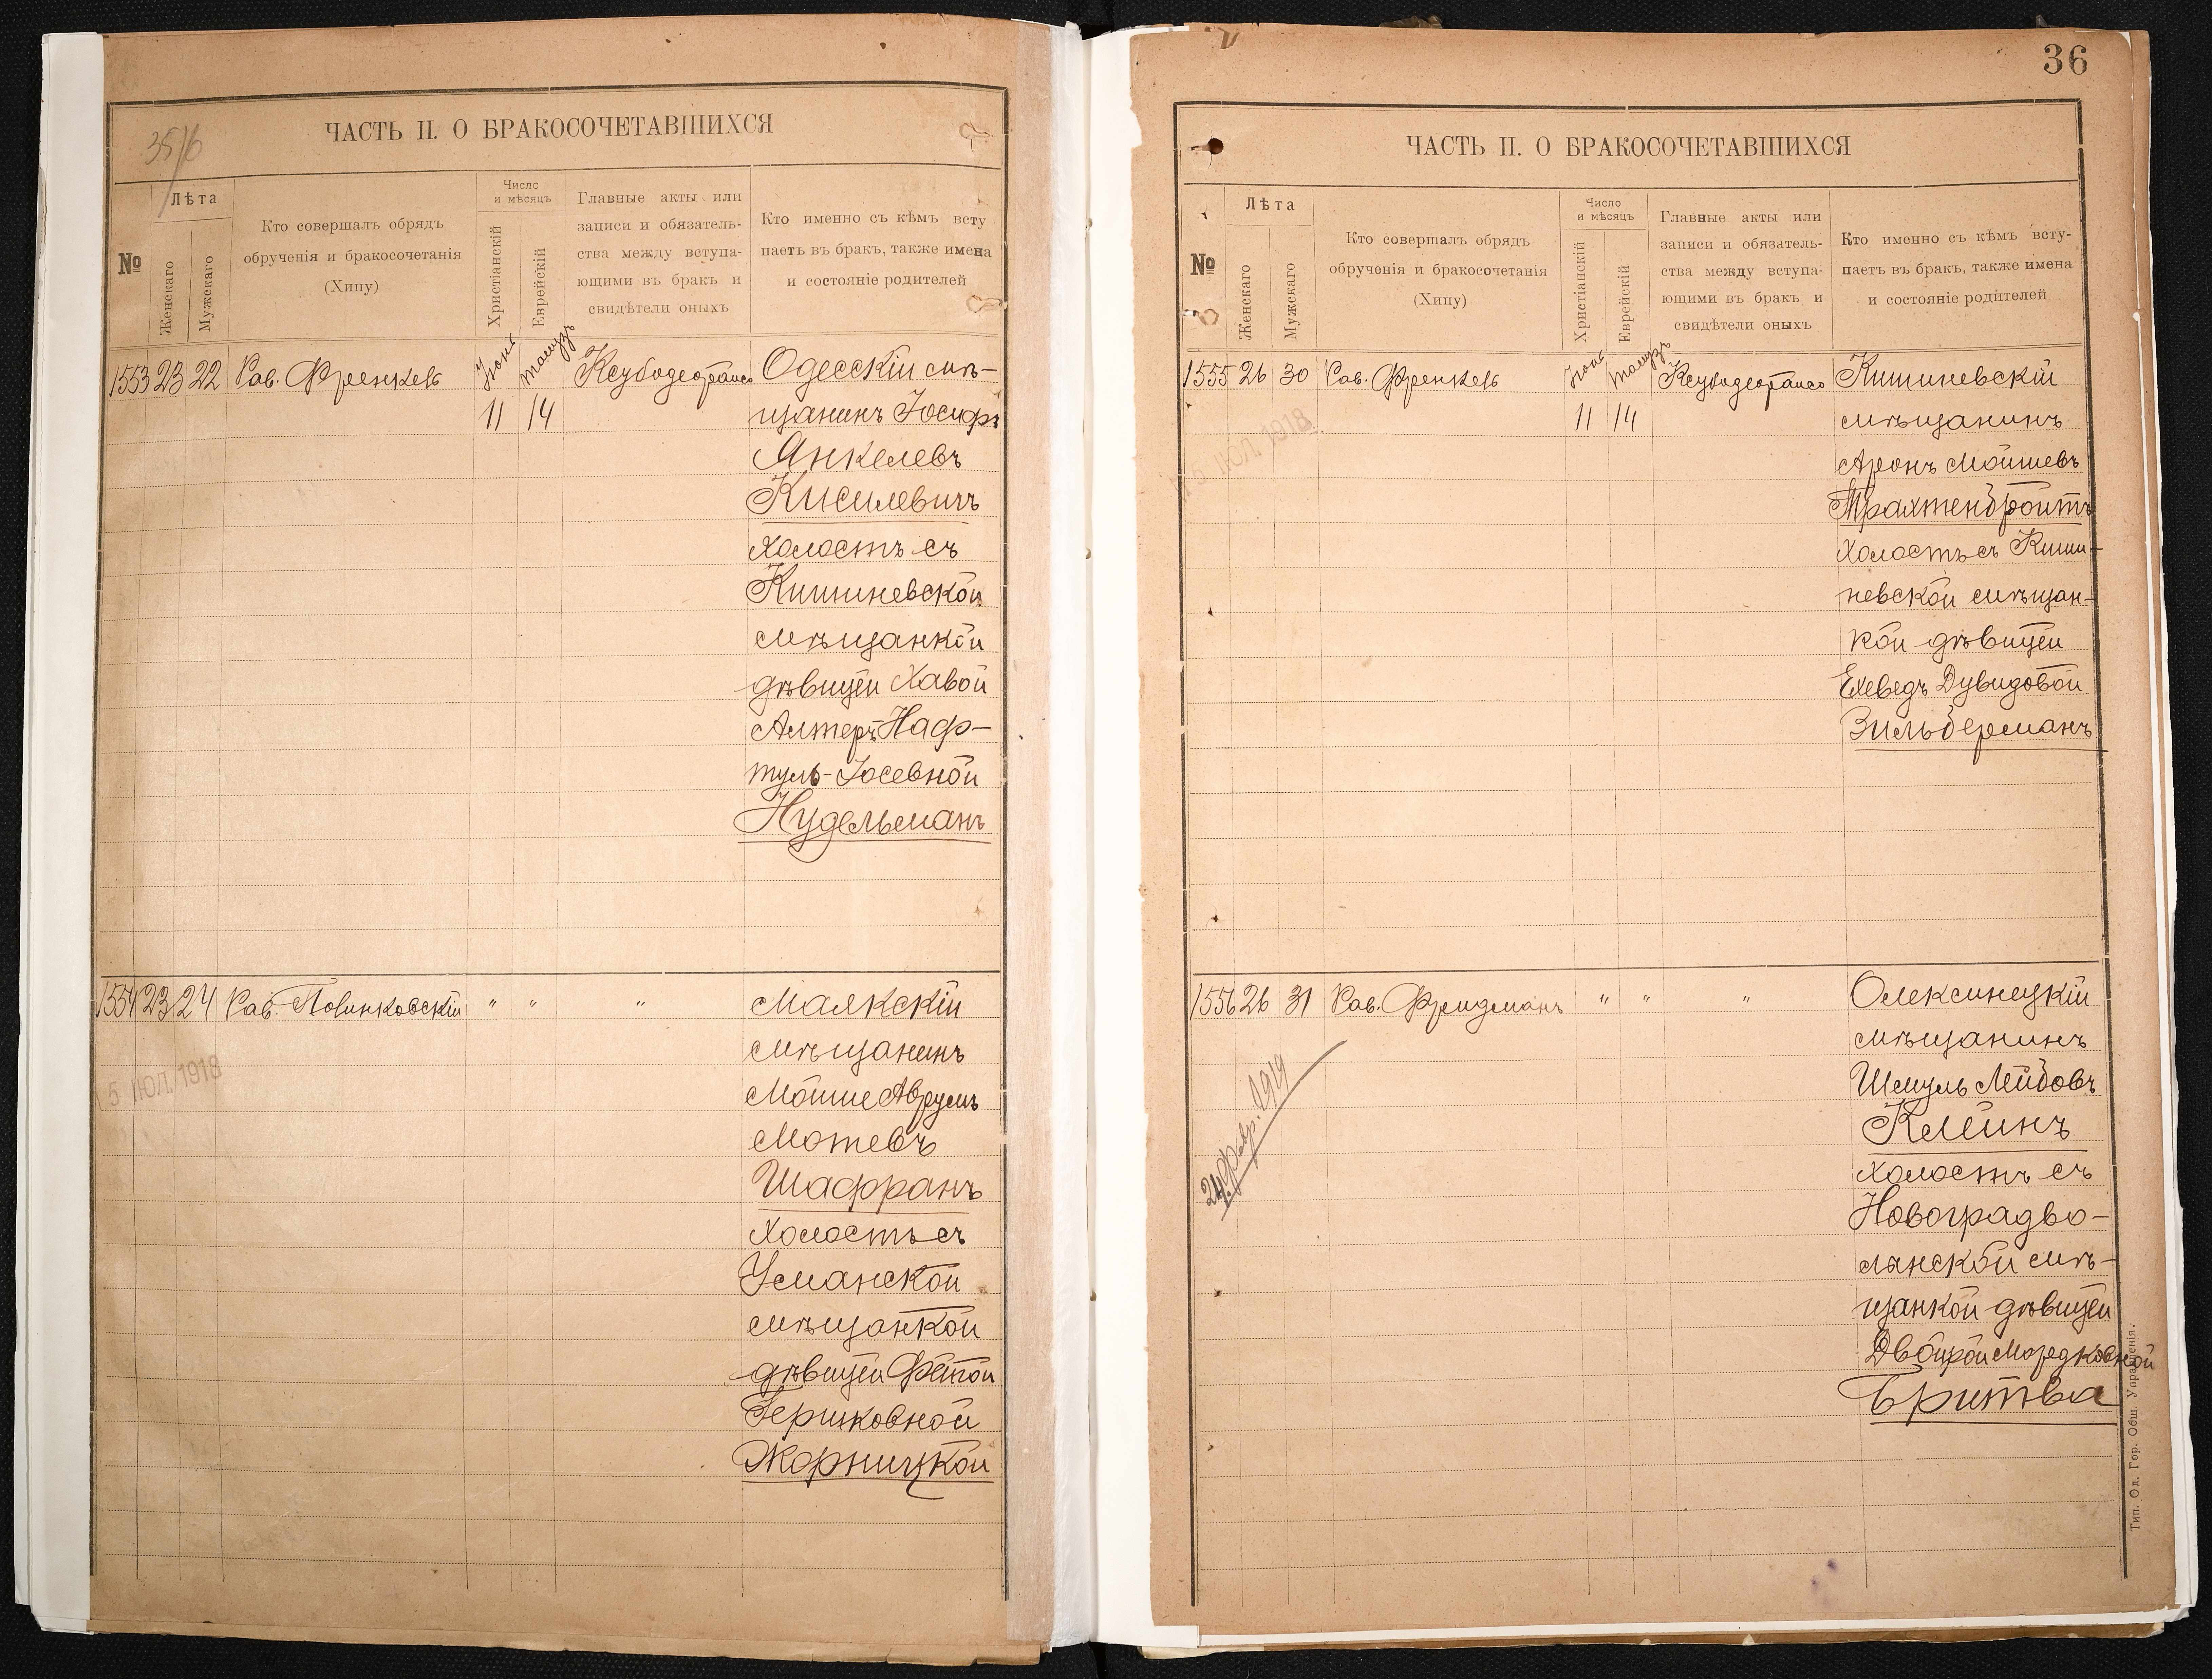 35/6
ЧАСТЬ II. О БРАКОСОЧЕТАВШИХСЯ
№
Лѣта
Женскаго
Мужскаго
Кто совершалъ обрядъ
обрученія и бракосочетанія
(Хипу)
Число
и мѣсяцъ
Христіанскій
Еврейскій
Главные акты или
записи и обязатель-
ства между вступа-
ющими въ бракъ и
свидѣтели оныхъ
Кто именно съ кѣмъ всту
паетъ въ бракъ, также имена
и состояніе родителей
1553 23 22 Рав. Френкель Іюнь Тамузъ Ксубодеорайсо Одесскій мѣ-
11 14 щанинъ Іосифъ
Янкелевъ
Кисилевичъ
холостъ съ
Кишиневской
мѣщанкой
дѣвицей Хавой
Алтеръ Наф-
туль-Іосевной
Нудельманъ
1554 23 24 Рав. " " " Маякскій
мѣщанинъ
Мойше Аврумъ
Мотевъ
Шафранъ
холостъ съ
Уманской
мѣщанкой
дѣвицей Фейгой
Гершковной
Жорницкой
5 ІЮЛ. 1918
36
ЧАСТЬ II. О БРАКОСОЧЕТАВШИХСЯ
№
Лѣта
Женскаго
Мужскаго
Кто совершалъ обрядъ
обрученія и бракосочетанія
(Хипу)
Число
и мѣсяцъ
Христіанскій
Еврейскій
Главные акты или
записи и обязатель-
ства между вступа-
ющими въ бракъ и
свидѣтели оныхъ
Кто именно съ кѣмъ всту-
паетъ въ бракъ, также имена
и состояніе родителей
1555 26 30 Рав. Френкель Іюнь Тамузъ Ксубодеорайсо Кишиневскій
11 14 мѣщанинъ
Аронъ Мойшевъ
Трахтенбройтъ
холостъ съ Киши-
невской мѣщан-
кой дѣвицей
Ехеведъ Дувидовой
Зильберманъ
5 ІЮЛ. 1918
1556 26 31 Рав. Фридманъ " " " Олексинецкій
мѣщанинъ
Шмуль Лейбовъ
Клейнъ
холостъ съ
Новоградво-
лынской мѣ-
щанкой дѣвицей
Двойрой Мордковной
Бритва
24 февр. 1919
Тип. Од. Гор. Общ. Управленія.